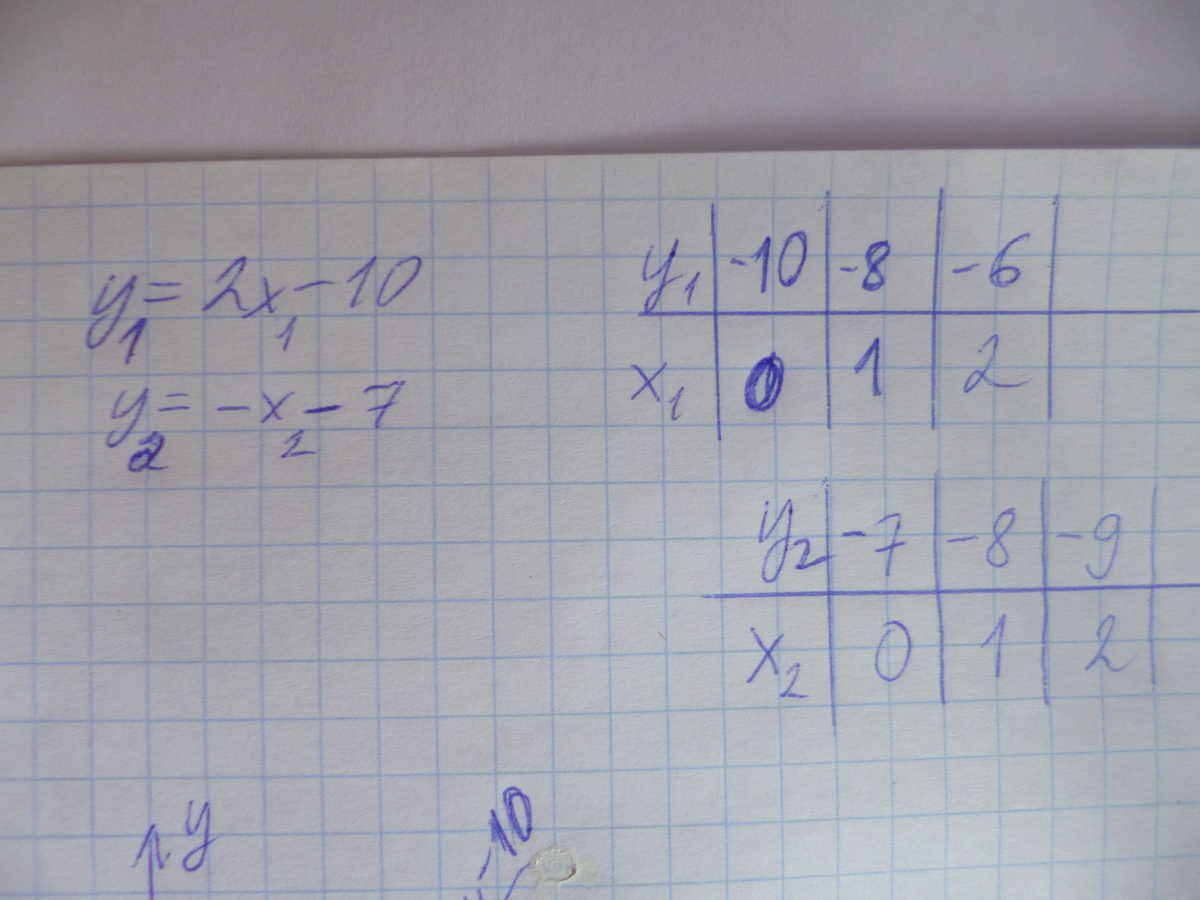 y₁ = 2x₁ - 10
y₂ = -x₂ - 7
y₁ -10 -8 -6
x₁ 0 1 2
y₂ -7 -8 -9
x₂ 0 1 2
y
-10